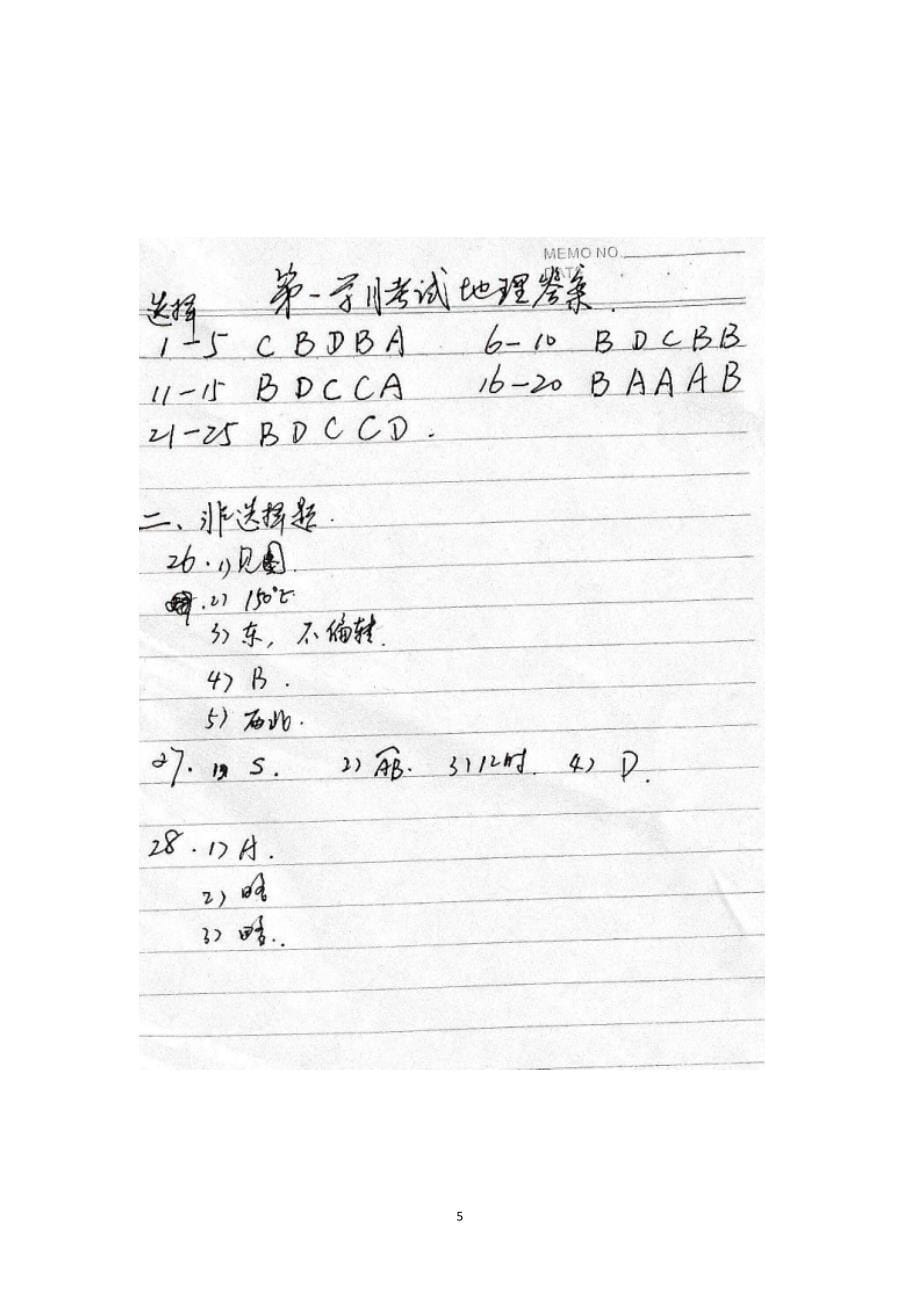 MEMO NO.
DATE
第一学川考试地理答案.
选择
1-5 C B D B A 6-10 B D C B B
11-15 B D C C A 16-20 B A A A B
21-25 B D C C D.
二、非选择题.
26.1)见图.
2) 150°E
3) 东, 不偏转.
4) B.
5) 西北.
27. 1) S. 2) AB. 3) 12时. 4) D.
28.1) A.
2) 略
3) 略..
5